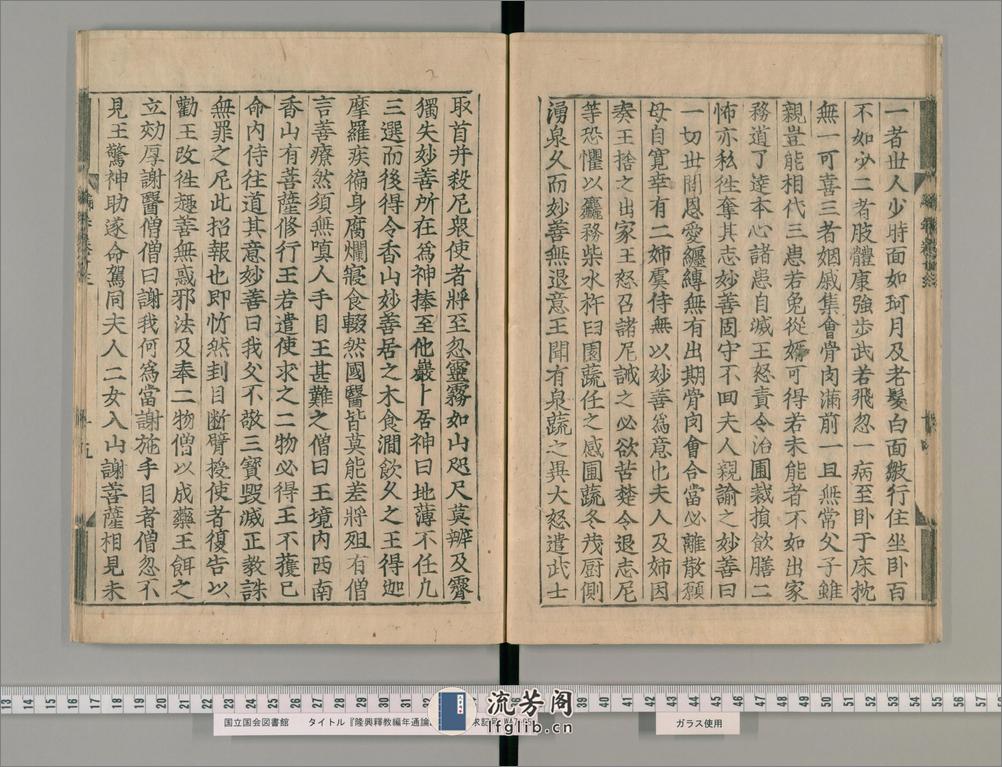 一者世人少時面如珂月及老髮白面皺行住坐卧百
不如少二者肢體康強步武若飛忽一病至卧于床枕
無一可喜三者姻戚集會骨肉滿前一旦無常父子雖
親豈能相代三患若免從婿可得若未能者不如出家
務道了達本心諸患自滅王怒責令治圃裁損飲膳二
姉亦私徃奪其志妙善固守不回夫人親諭之妙善曰
一切世間恩愛纏縛無有出期骨肉會合當必離散願
母自寬幸有二姉虞侍無以妙善爲意也夫人及姉因
奏王捨之出家王怒召諸尼誡之必欲苦楚令退志尼
等恐懼以麤務柴水杵臼園蔬任之感圃蔬冬茂厨側
湧泉久而妙善無退意王聞有泉蔬之異大怒遣武士
取首并殺尼衆使者將至忽靈霧如山咫尺莫辨及霽
獨失妙善所在爲神捧至他巖卜居神曰地薄不任凢
三選而後得令香山妙善居之木食澗飲久之王得迦
摩羅疾徧身腐爛寢食輟然國醫皆莫能差將殂有僧
言善療然須無嗔人手目王甚難之僧曰王境内西南
香山有菩薩修行王若遣使求之二物必得王不獲已
命内侍往道其意妙善曰我父不敬三寳毀滅正教誅
無罪之尼此招報也即忻然刲目斷臂授使者復告以
勸王改徃趣善無惑邪法及奉二物僧以成藥王餌之
立効厚謝醫僧僧曰謝我何爲當謝施手目者僧忽不
見王驚神助遂命駕同夫人二女入山謝菩薩相見未
国立国会図書館 タイトル『隆興釋教編年通論』
ガラス使用
流芳阁
lfglib.cn